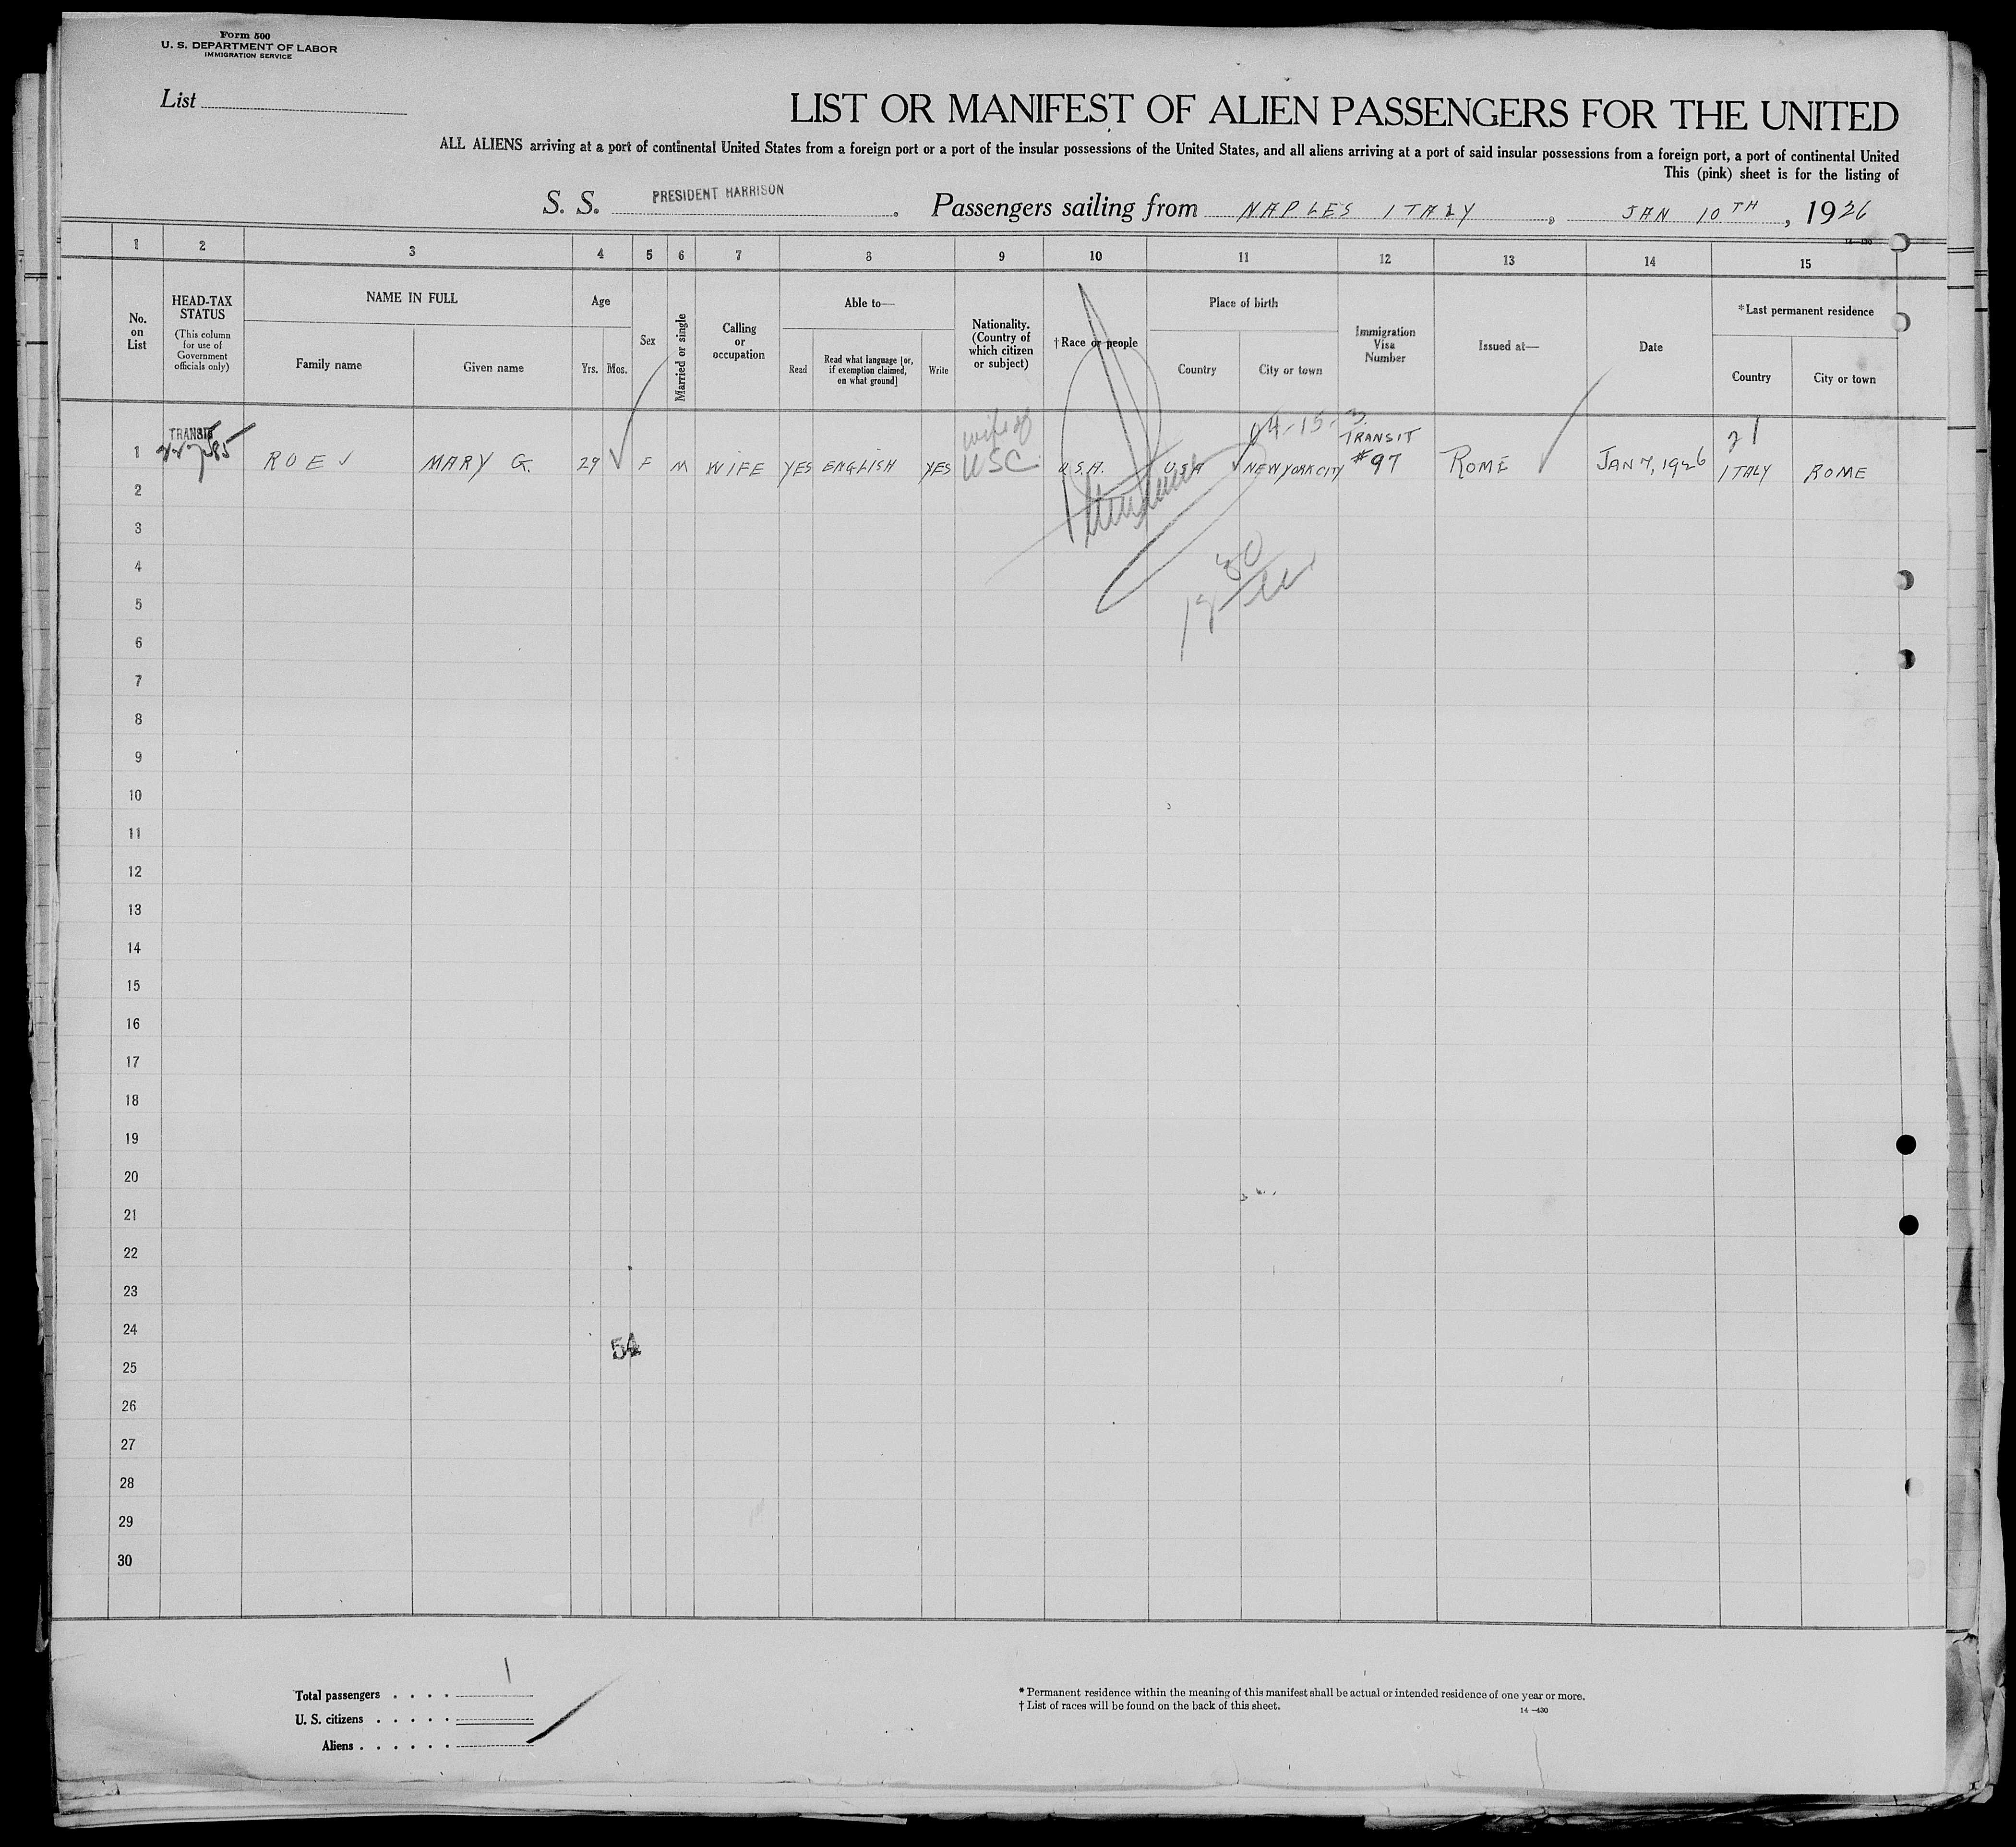 Form 500
U. S. DEPARTMENT OF LABOR
IMMIGRATION SERVICE
List
LIST OR MANIFEST OF ALIEN PASSENGERS FOR THE UNITED
ALL ALIENS arriving at a port of continental United States from a foreign port or a port of the insular possessions of the United States, and all aliens arriving at a port of said insular possessions from a foreign port, a port of continental United
This (pink) sheet is for the listing of
S. S. PRESIDENT HARRISON. Passengers sailing from NAPLES ITALY, JAN 10TH, 1926
14-430
1 2 3 4 5 6 7 8 9 10 11 12 13 14 15
No. on List
HEAD-TAX STATUS
(This column for use of Government officials only)
NAME IN FULL
Family name Given name
Age
Yrs. Mos.
Sex
Married or single
Calling or occupation
Able to—
Read
Read what language [or, if exemption claimed, on what ground]
Write
Nationality. (Country of which citizen or subject)
†Race or people
Place of birth
Country City or town
Immigration Visa Number
Issued at—
Date
*Last permanent residence
Country City or town
TRANSIT wife of 04-15-3 TRANSIT 21
1 ROE MARY G. 29 F M WIFE YES ENGLISH YES USC U.S.A. U.S.A NEW YORK CITY #97 ROME JAN 7, 1926 ITALY ROME
2
3
4
5
6
7
8
9
10
11
12
13
14
15
16
17
18
19
20
21
22
23
24
54
25
26
27
28
29
30
Total passengers . . . . 1
U. S. citizens . . . . .
Aliens . . . . . .
* Permanent residence within the meaning of this manifest shall be actual or intended residence of one year or more.
† List of races will be found on the back of this sheet.
14-430